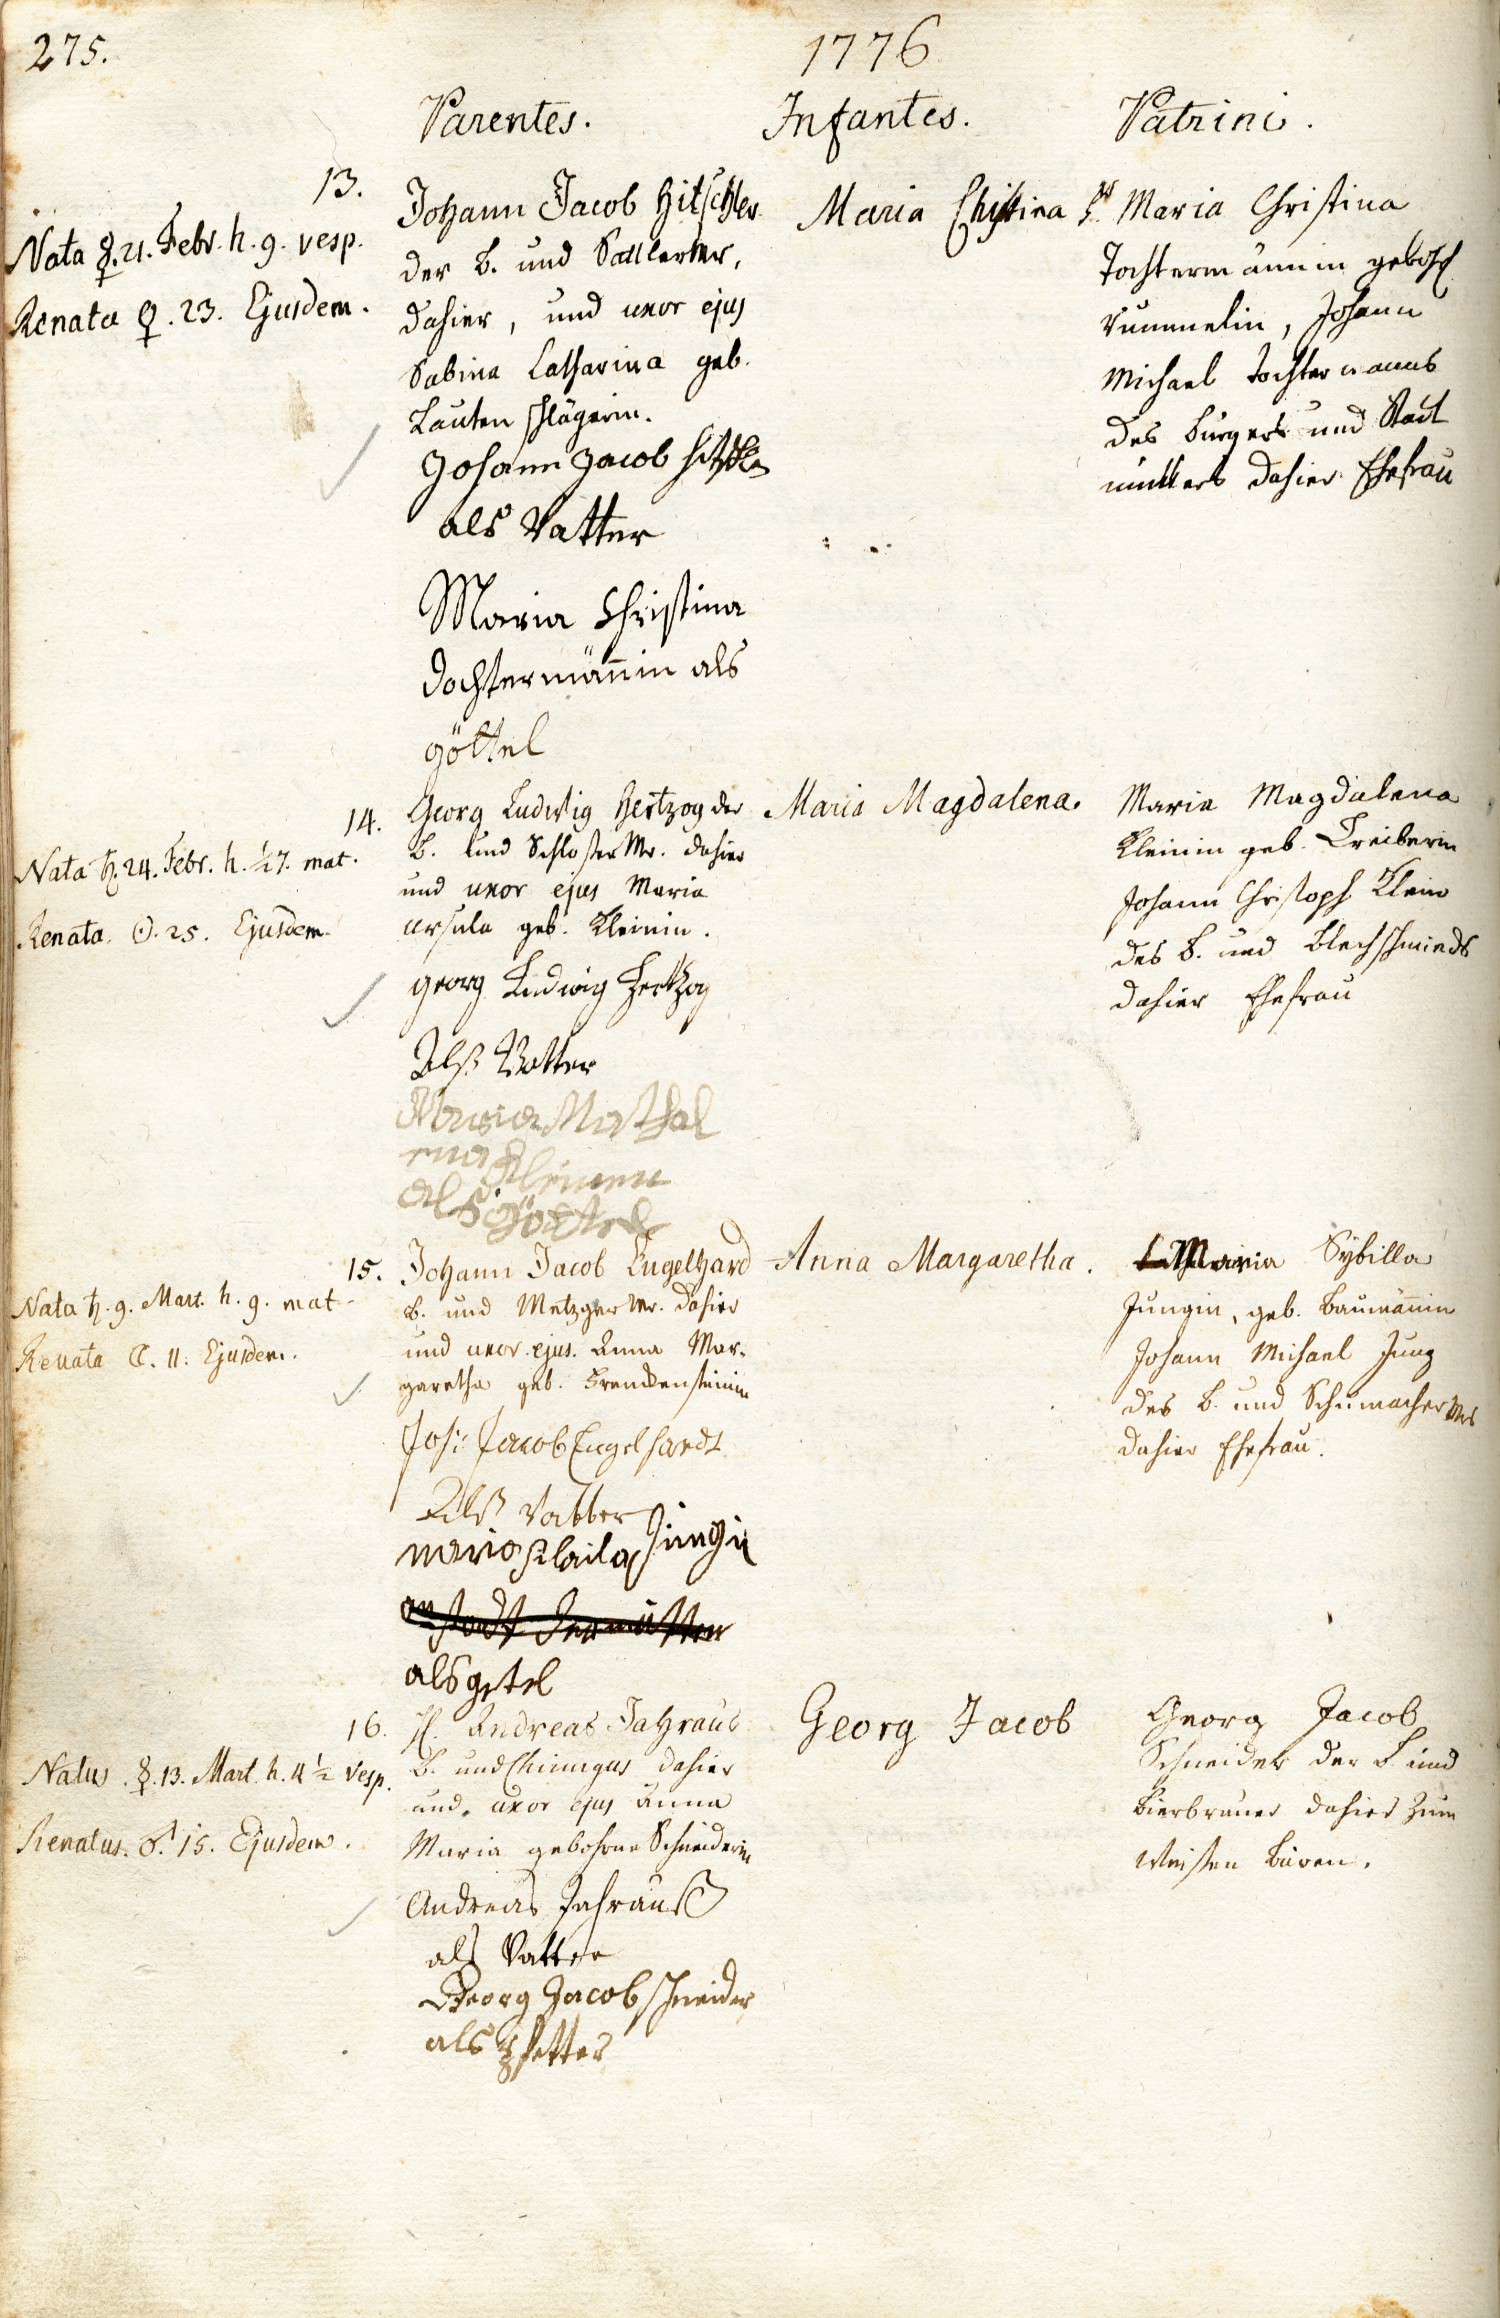 275.
1776
Parentes. Infantes. Patrini.
13.
Nata ☿. 21. Febr. h. 9. vesp.
Renata ♀. 23. Ejusdem.
Johann Jacob Hitschler
der b. und Sattler Mr.
dahier, und uxor ejus
Sabina Catharina geb.
Lautenschlägerin.
Johann Jacob Hitschler
als Vatter
Maria Christina
Dochtermännin als
göttel
Maria Christina
Maria Christina
Tochtermännin gebohr
Rummelin, Johann
Michael Tochtermanns
des burgers und Stadt
müllers dahier Ehefrau
14.
Nata ♄. 24. Febr. h. ½7. mat.
Renata. ☉. 25. Ejusdem.
Georg Ludwig Hertzog der
b. und Schlosser Mr. dahier
und uxor ejus Maria
Ursula geb. Kleinin.
georg Ludwig Hertzog
Alß Vatter
Maria Mathal
ena Kleinen
als Göttel
Maria Magdalena.
Maria Magdalena
Kleinin geb. Treiberin
Johann Christoph Klein
des b. und blechschmieds
dahier Ehefrau
15.
Nata ♄. 9. Mart. h. 9. mat.
Renata ☾. 11. Ejusdem.
Johann Jacob Engelhard
b. und Metzger Mr. dahier
und uxor ejus. Anna Mar-
garetha geb. Freudensteinin
Joh: Jacob Engelhardt
Alß Vatter
maria Jungin
anstadt der mutter
als getel
Anna Margaretha.
Maria Sybilla
Jungin, geb. Baumännin
Johann Michael Jung
des b. und Schumacher Mrs
dahier Ehefrau.
16.
Natus. ☿. 13. Mart. h. 4 ½ vesp.
Renatus. ♂. 15. Ejusdem.
H. Andreas Jahraus
b. und Chirurgus dahier
und uxor ejus Anna
Maria gebohrne Schneiderin
Andreas Jahrauß
als Vatter
Georg Jacob schneider
als Pfetter
Georg Jacob
Georg Jacob
Schneider der b. und
bierbrauer dahier zum
weissen bären.